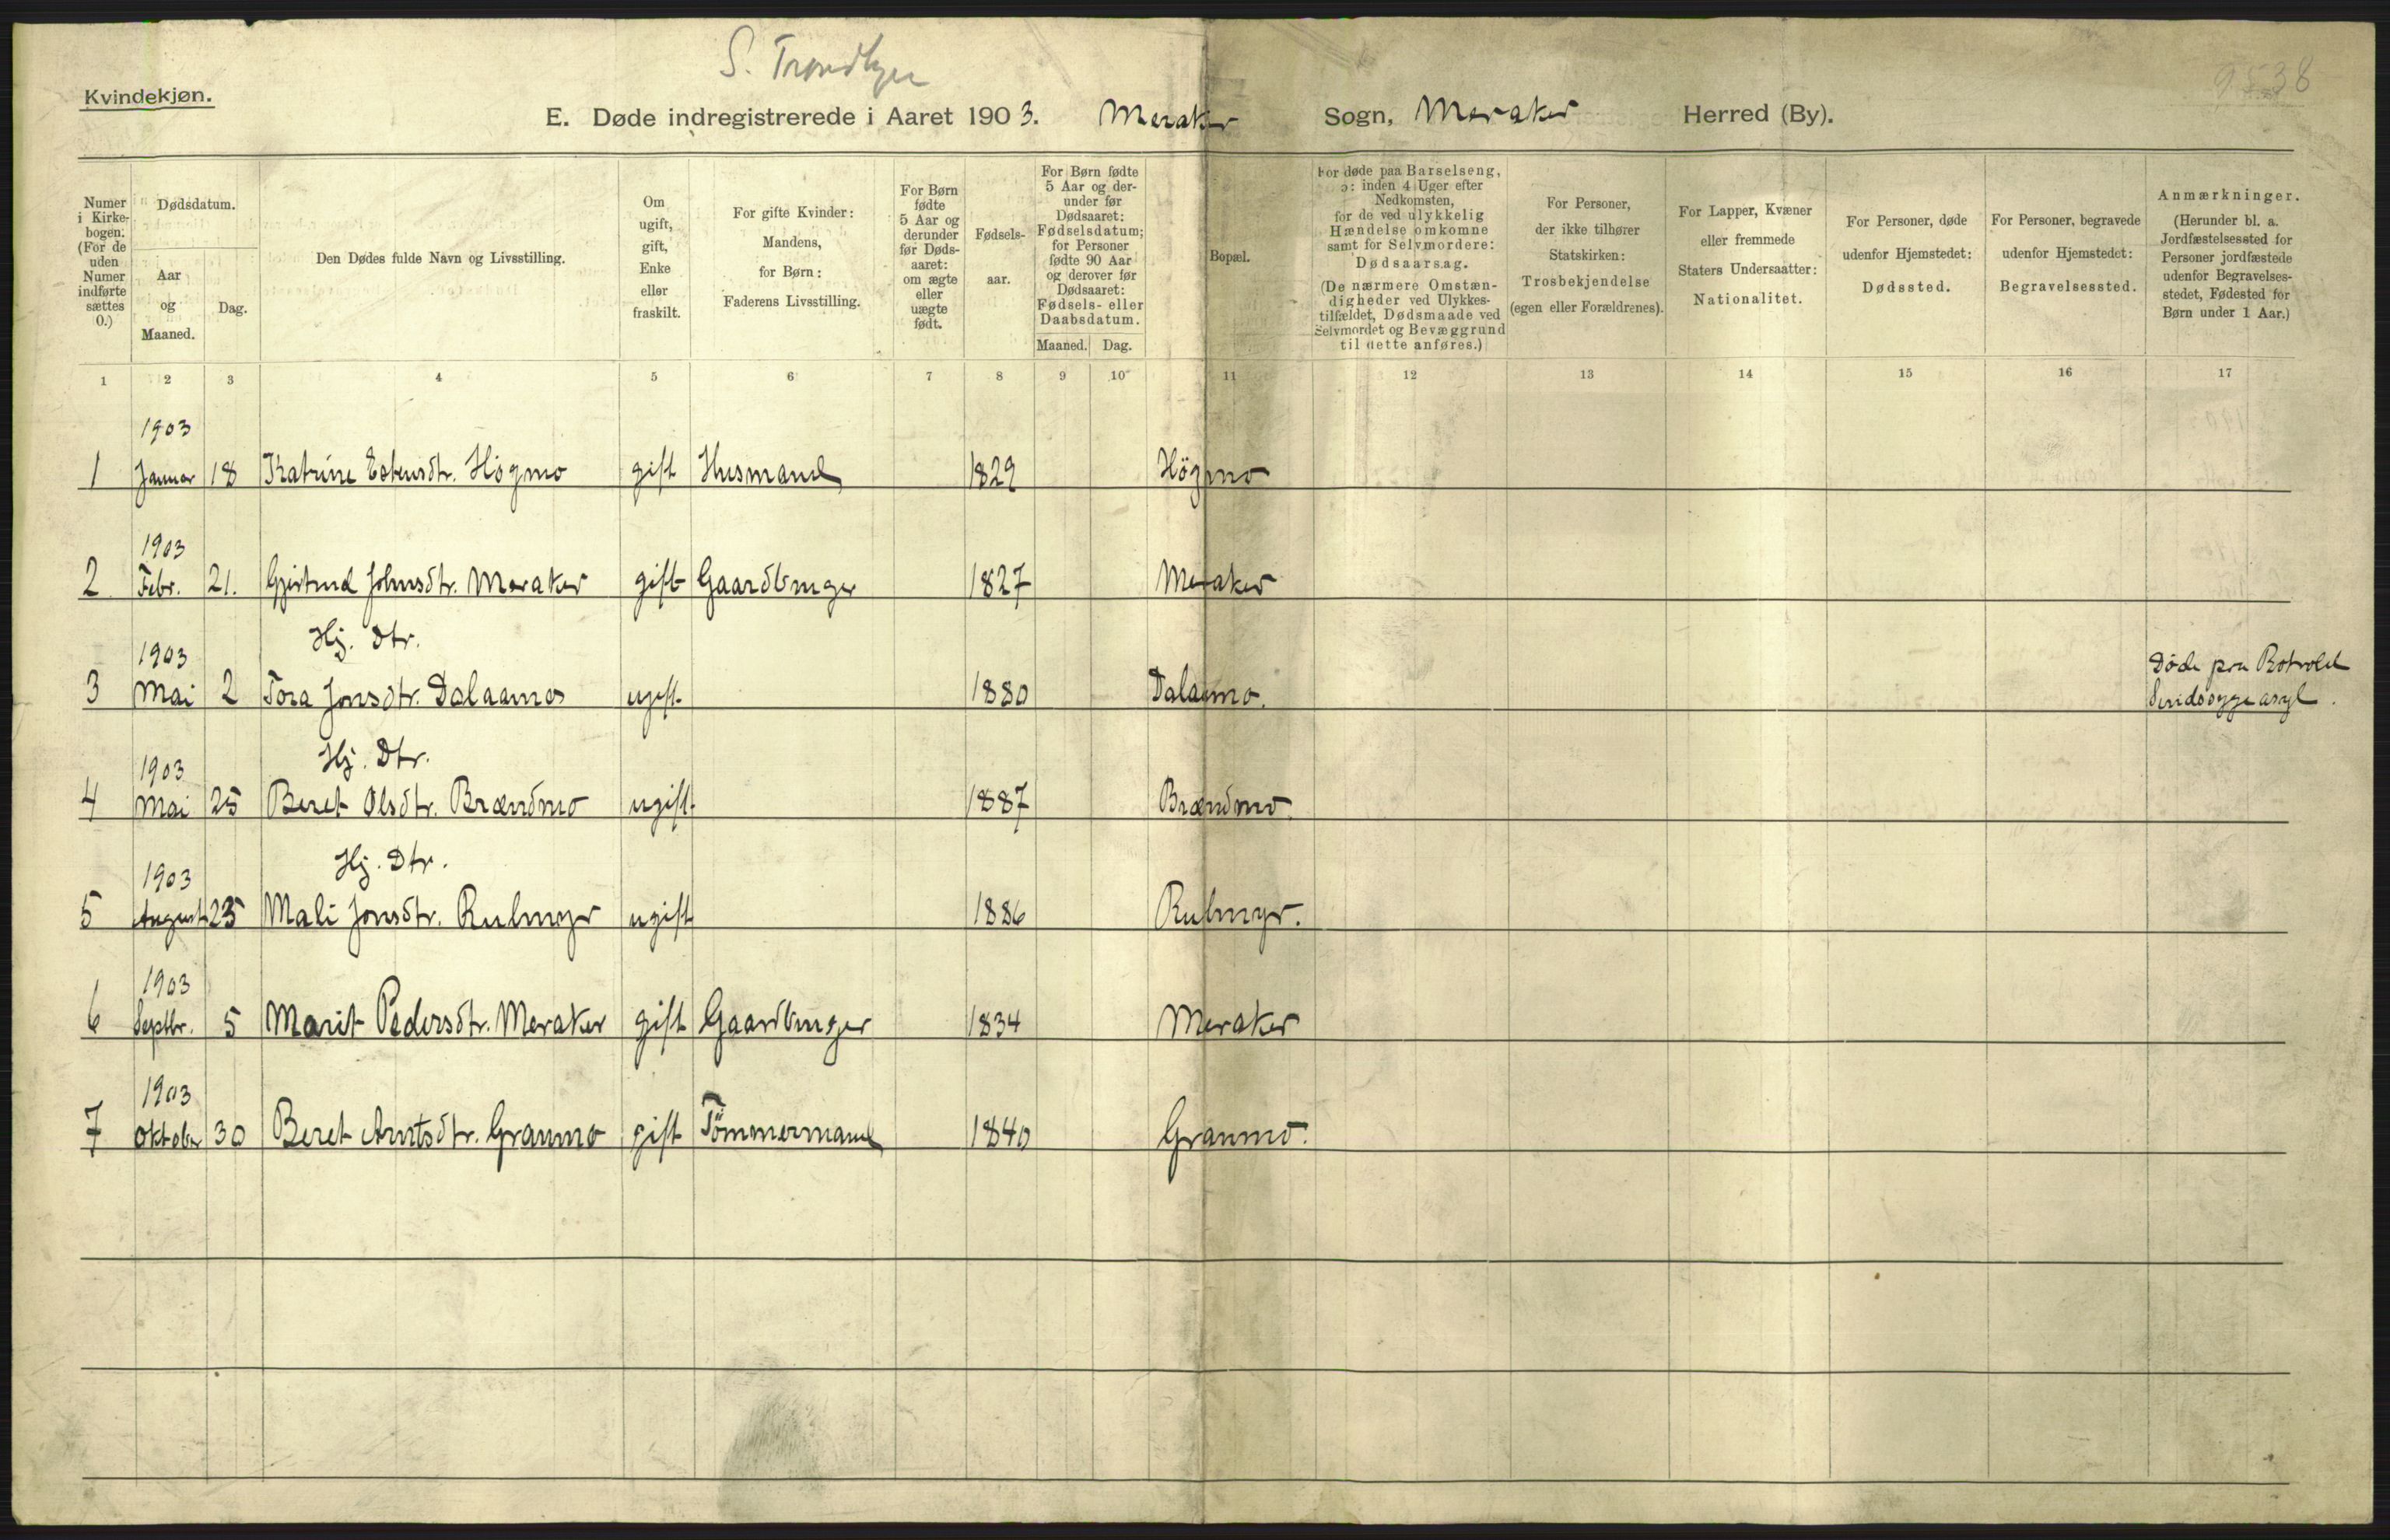 S. Trondhjen
9538
Kvindekjøn.
E. Døde indregistrerede i Aaret 1903. Meraker Sogn, Meraker Herred (By).
Numer i Kirkebogen. (For de uden Numer indførte sættes 0.)
Dødsdatum.
Aar og Maaned.
Dag.
Den Dødes fulde Navn og Livsstilling.
Om ugift, gift, Enke eller fraskilt.
For gifte Kvinder: Mandens, for Børn: Faderens Livsstilling.
For Børn fødte 5 Aar og derunder før Dødsaaret: om ægte eller uægte født.
Fødselsaar.
For Børn fødte 5 Aar og derunder før Dødsaaret: Fødselsdatum; for Personer fødte 90 Aar og derover før Dødsaaret: Fødsels- eller Daabsdatum.
Maaned. Dag.
Bopæl.
For døde paa Barselseng, ɔ: inden 4 Uger efter Nedkomsten, for de ved ulykkelig Hændelse omkomne samt for Selvmordere: Dødsaarsag. (De nærmere Omstændigheder ved Ulykkestilfældet, Dødsmaade ved Selvmordet og Bevæggrund til dette anføres.)
For Personer, der ikke tilhører Statskirken: Trosbekjendelse (egen eller Forældrenes).
For Lapper, Kvæner eller fremmede Staters Undersaatter: Nationalitet.
For Personer, døde udenfor Hjemstedet: Dødssted.
For Personer, begravede udenfor Hjemstedet: Begravelsessted.
Anmærkninger. (Herunder bl. a. Jordfæstelsessted for Personer jordfæstede udenfor Begravelsesstedet, Fødested for Børn under 1 Aar.)
1 2 3 4 5 6 7 8 9 10 11 12 13 14 15 16 17
1903
1 Januar 18 Katrine Estensdtr. Högmo gift Husmand 1829 Högmo
1903
2 Febr. 21. Gjertrud Johnsdtr. Meraker gift Gaardbruger 1827 Meraker
1903 Hj. Dtr.
3 Mai 2 Tora Jonsdtr. Dalaamo ugift 1880 Dalaamo. Døde paa Rotvold Sindssygeasyl.
1903 Hj. Dtr.
4 Mai 25 Beret Olsdtr. Brændmo ugift 1887 Brændmo.
1903 Hj. Dtr.
5 August 25 Mali Jonsdtr. Kulmyr ugift 1886 Kulmyr.
1903
6 Septbr. 5 Marit Pedersdtr. Meraker gift Gaardbruger 1834 Meraker
1903
7 Oktober 30 Beret Arntsdtr. Granmo gift Tömmermand 1840 Granmo.